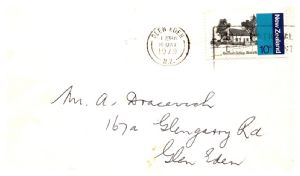 GLEN EDEN
1979
N.Z.
New Zealand
10c
Mr. A. Dracevich
167a Glengarry Rd
Glen Eden